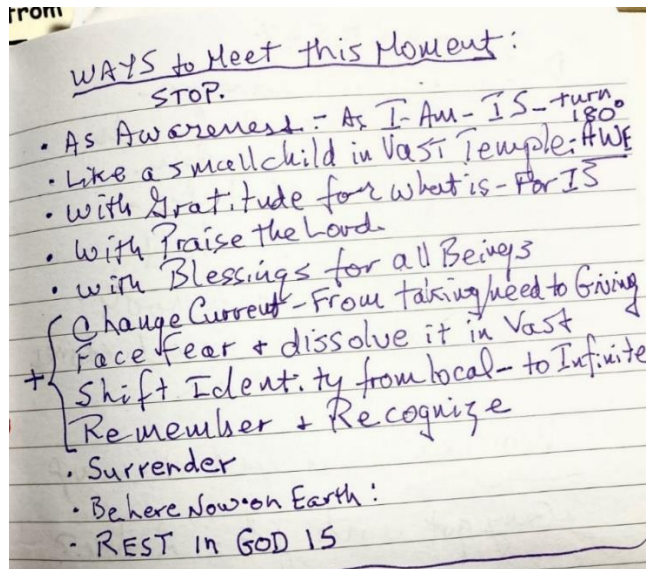 from
WAYS to Meet this Moment:
STOP.
• As Awareness - As I-Am - IS - turn 180°
• Like a small child in Vast Temple: AWE
• with Gratitude for what is - For IS
• with Praise the Lord.
• with Blessings for all Beings
Change Current - From taking/need to Giving
Face Fear + dissolve it in Vast
+ Shift Identity from local - to Infinite
Remember + Recognize
• Surrender
• Be here Now • on Earth:
• REST in GOD IS